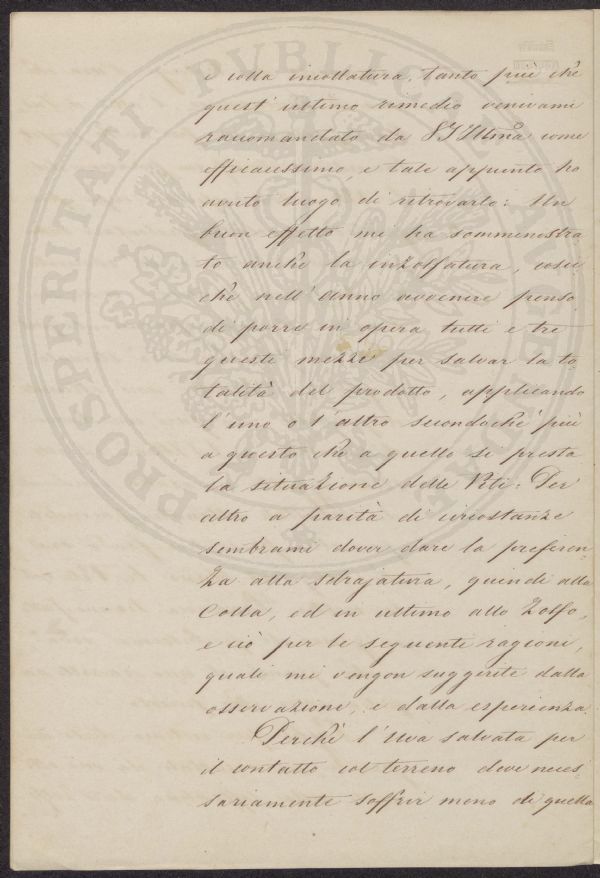 e colla incollatura, tanto più chè
quest' ultimo rimedio venivami
raccomandato da S. S. Illma come
efficacissimo, e tale appunto ho
avuto luogo di ritrovarlo: Un
buon effetto mi ha somministra
to anche la inzolfatura, cosic
chè nell' anno avvenire penso
di porre in opera tutti e tre
questi mezzi per salvar la to
talità del prodotto, applicando
l' uno o l' altro secondochè più
a questo che a quello si presta
la situazione delle Viti: Per
altro a parità di circostanze
sembrami dover dare la preferen
za alla sdrajatura, quindi alla
Colla, ed in ultimo allo Zolfo,
e ciò per le seguenti ragioni,
quali mi vengon suggerite dalla
osservazione, e dalla esperienza.
Perchè l' Uva salvata per
il contatto col terreno deve neces
sariamente soffrir meno di quella
PROSPERITATI PVBLICAE